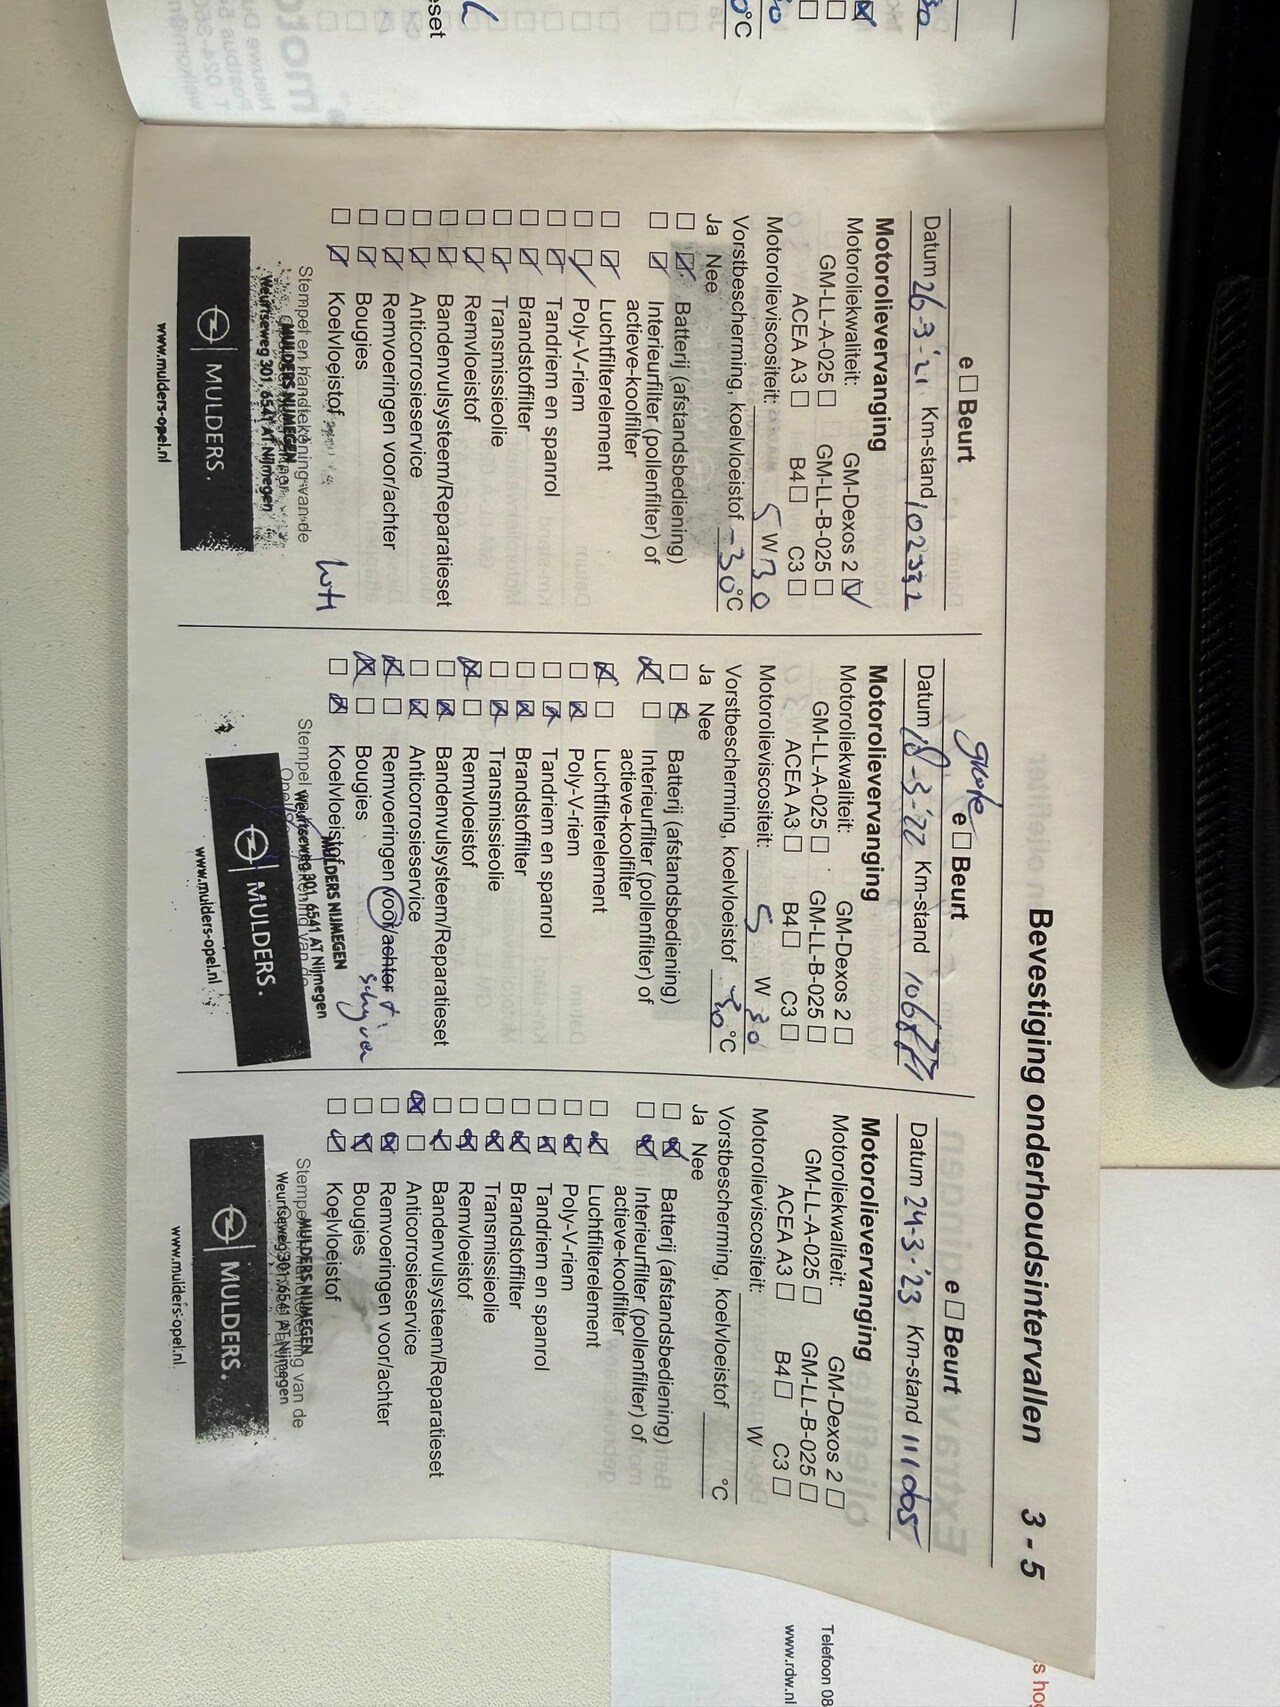 Bevestiging onderhoudsintervallen 3 - 5
e Beurt
Datum 26-3-'21 Km-stand 102332
Motorolievervanging
Motoroliekwaliteit: GM-Dexos 2
GM-LL-A-025 GM-LL-B-025
ACEA A3 B4 C3
Motorolieviscositeit: 5 W 30
Vorstbescherming, koelvloeistof -30°C
Ja Nee
Batterij (afstandsbediening)
Interieurfilter (pollenfilter) of
actieve-koolfilter
Luchtfilterelement
Poly-V-riem
Tandriem en spanrol
Brandstoffilter
Transmissieolie
Remvloeistof
Bandenvulsysteem/Reparatieset
Anticorrosieservice
Remvoeringen voor/achter
Bougies
Koelvloeistof
Stempel en handtekening van de
MULDERS NIJMEGEN
Weurtseweg 301, 6541 AT Nijmegen
MULDERS.
www.mulders-opel.nl
grote
e Beurt
Datum 18-3-'22 Km-stand
Motorolievervanging
Motoroliekwaliteit: GM-Dexos 2
GM-LL-A-025 GM-LL-B-025
ACEA A3 B4 C3
Motorolieviscositeit: 5 W 30
Vorstbescherming, koelvloeistof -30°C
Ja Nee
Batterij (afstandsbediening)
Interieurfilter (pollenfilter) of
actieve-koolfilter
Luchtfilterelement
Poly-V-riem
Tandriem en spanrol
Brandstoffilter
Transmissieolie
Remvloeistof
Bandenvulsysteem/Reparatieset
Anticorrosieservice
Remvoeringen voor/achter +
Bougies schijven
Koelvloeistof
MULDERS NIJMEGEN
Weurtseweg 301, 6541 AT Nijmegen
Stempel en handtekening van de
MULDERS.
www.mulders-opel.nl
e Beurt
Datum 24-3-'23 Km-stand 111005
Motorolievervanging
Motoroliekwaliteit: GM-Dexos 2
GM-LL-A-025 GM-LL-B-025
ACEA A3 B4 C3
Motorolieviscositeit: W
Vorstbescherming, koelvloeistof °C
Ja Nee
Batterij (afstandsbediening)
Interieurfilter (pollenfilter) of
actieve-koolfilter
Luchtfilterelement
Poly-V-riem
Tandriem en spanrol
Brandstoffilter
Transmissieolie
Remvloeistof
Bandenvulsysteem/Reparatieset
Anticorrosieservice
Remvoeringen voor/achter
Bougies
Koelvloeistof
MULDERS NIJMEGEN
Stempel en handtekening van de
Weurtseweg 301, 6541 AT Nijmegen
MULDERS.
www.mulders-opel.nl
Telefoon 08
www.rdw.nl